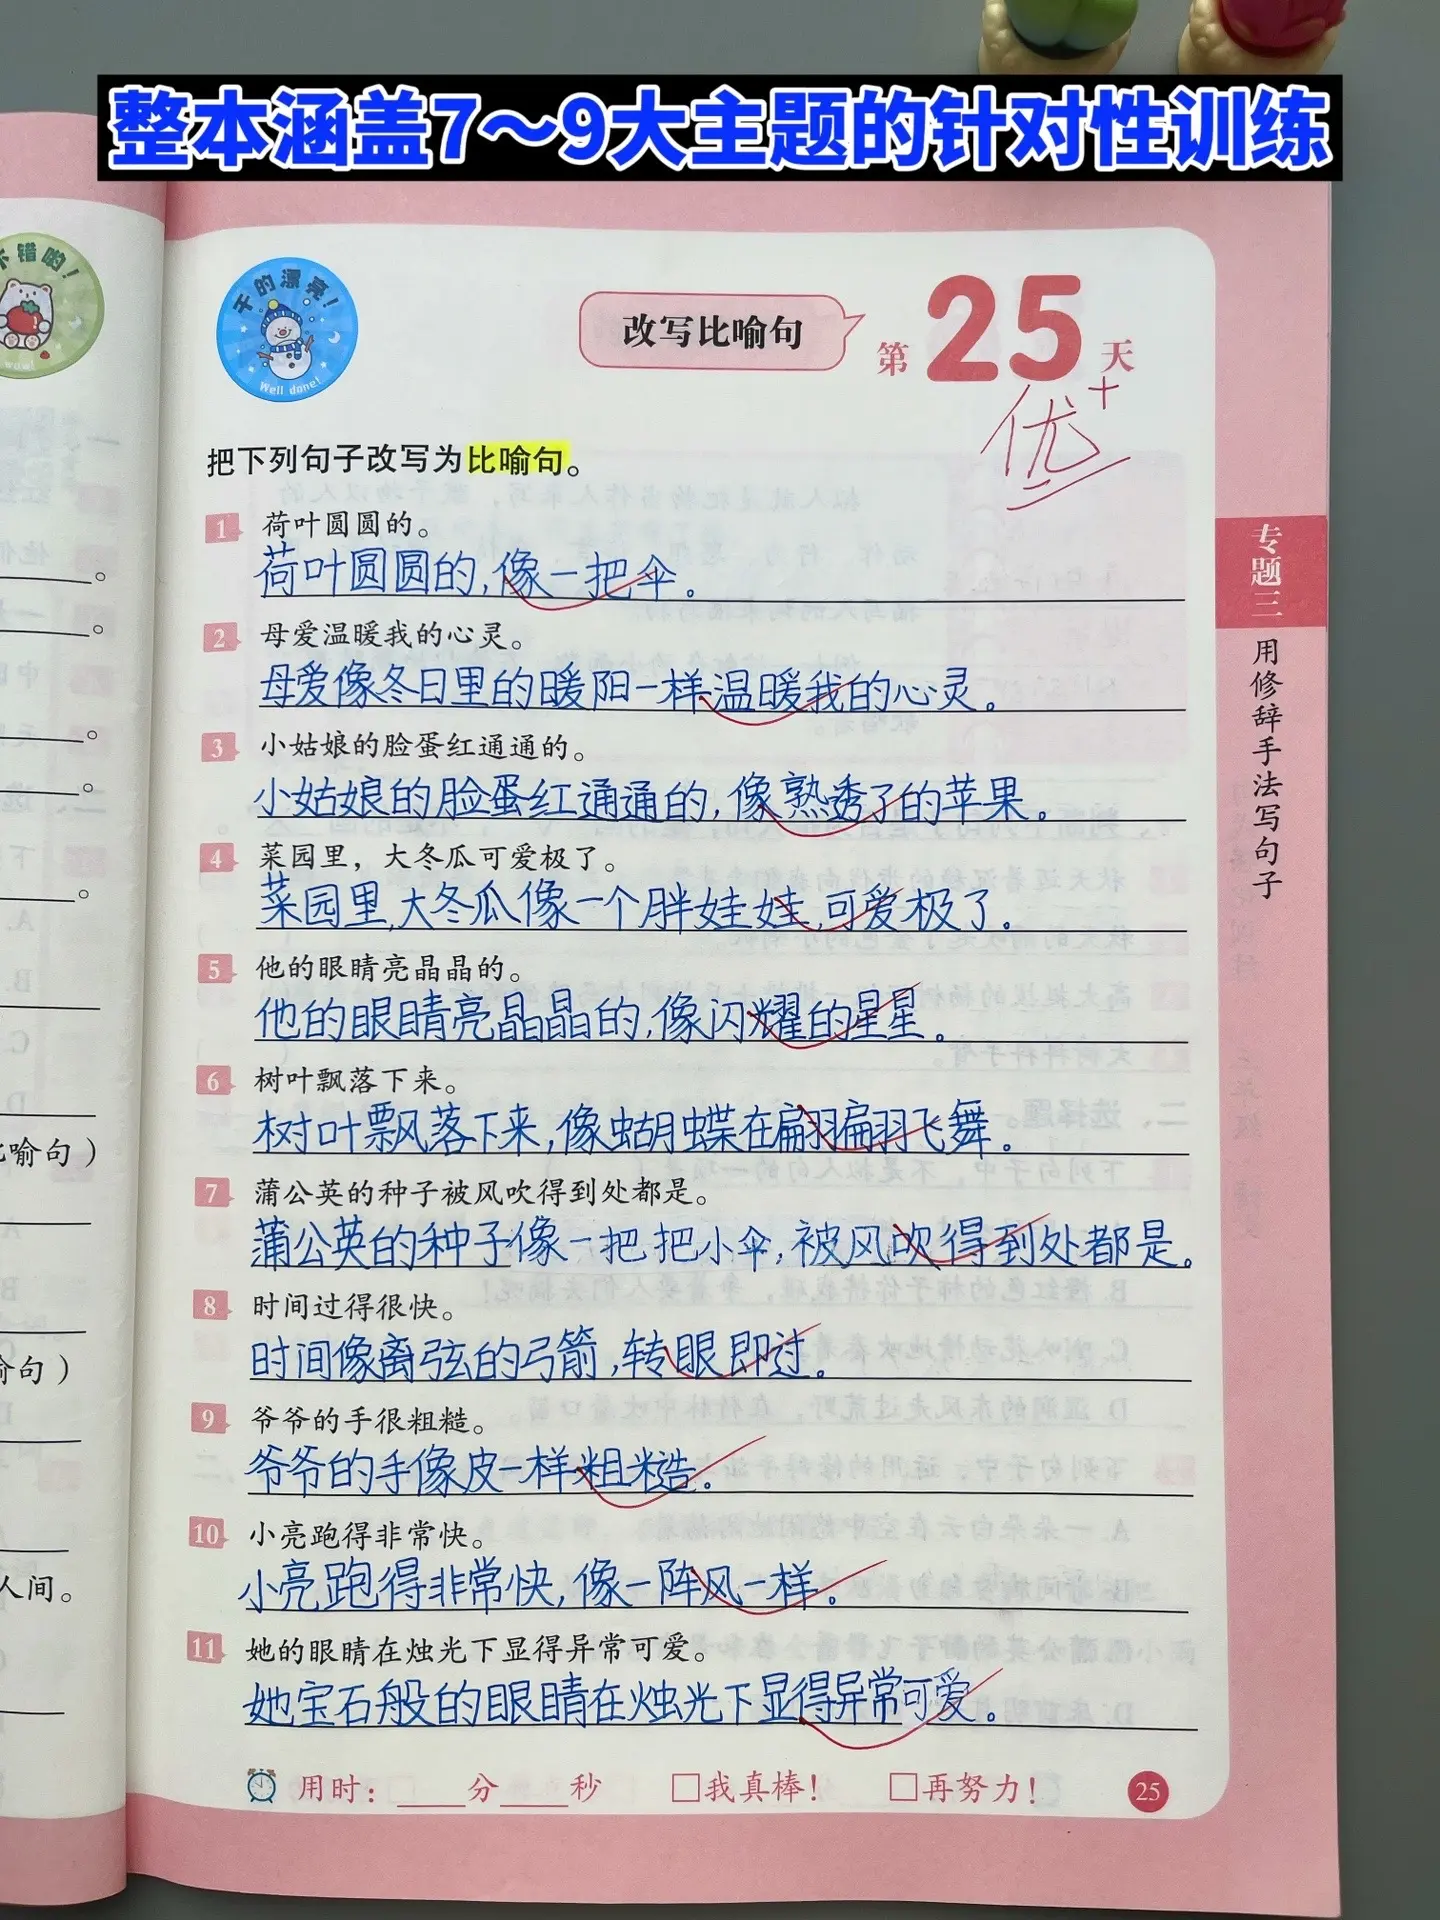 整本涵盖7～9大主题的针对性训练
不错哟！
wow!
干的漂亮！
Well done!
改写比喻句
第25天
优+
把下列句子改写为比喻句。
1 荷叶圆圆的。
荷叶圆圆的,像一把伞。
2 母爱温暖我的心灵。
母爱像冬日里的暖阳一样温暖我的心灵。
3 小姑娘的脸蛋红通通的。
小姑娘的脸蛋红通通的,像熟透了的苹果。
4 菜园里，大冬瓜可爱极了。
菜园里,大冬瓜像一个胖娃娃,可爱极了。
5 他的眼睛亮晶晶的。
他的眼睛亮晶晶的,像闪耀的星星。
6 树叶飘落下来。
树叶飘落下来,像蝴蝶在翩翩飞舞。
7 蒲公英的种子被风吹得到处都是。
蒲公英的种子像一把把小伞,被风吹得到处都是。
8 时间过得很快。
时间像离弦的弓箭,转眼即过。
9 爷爷的手很粗糙。
爷爷的手像皮一样粗糙。
10 小亮跑得非常快。
小亮跑得非常快,像一阵风一样。
11 她的眼睛在烛光下显得异常可爱。
她宝石般的眼睛在烛光下显得异常可爱。
用时：分秒 □我真棒！ □再努力！
25
专题三
用修辞手法写句子
喻句）
句）
人间。